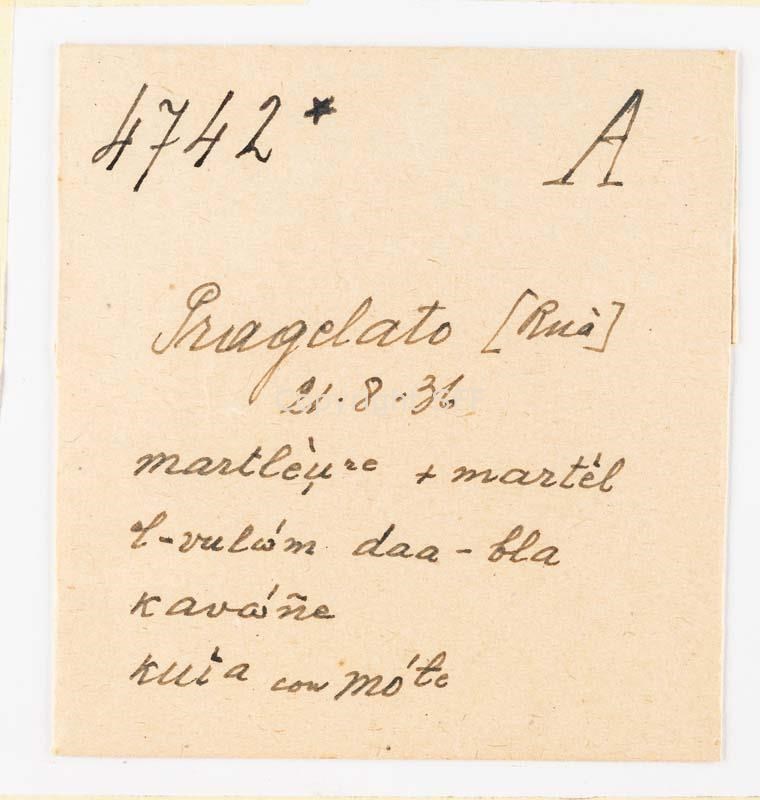 4742* A
Pragelato [Ruà]
21.8.36
martlèụʳᵉ + martèl
l-vulám daa-bla
kaváñe
kuìᵃ con móte